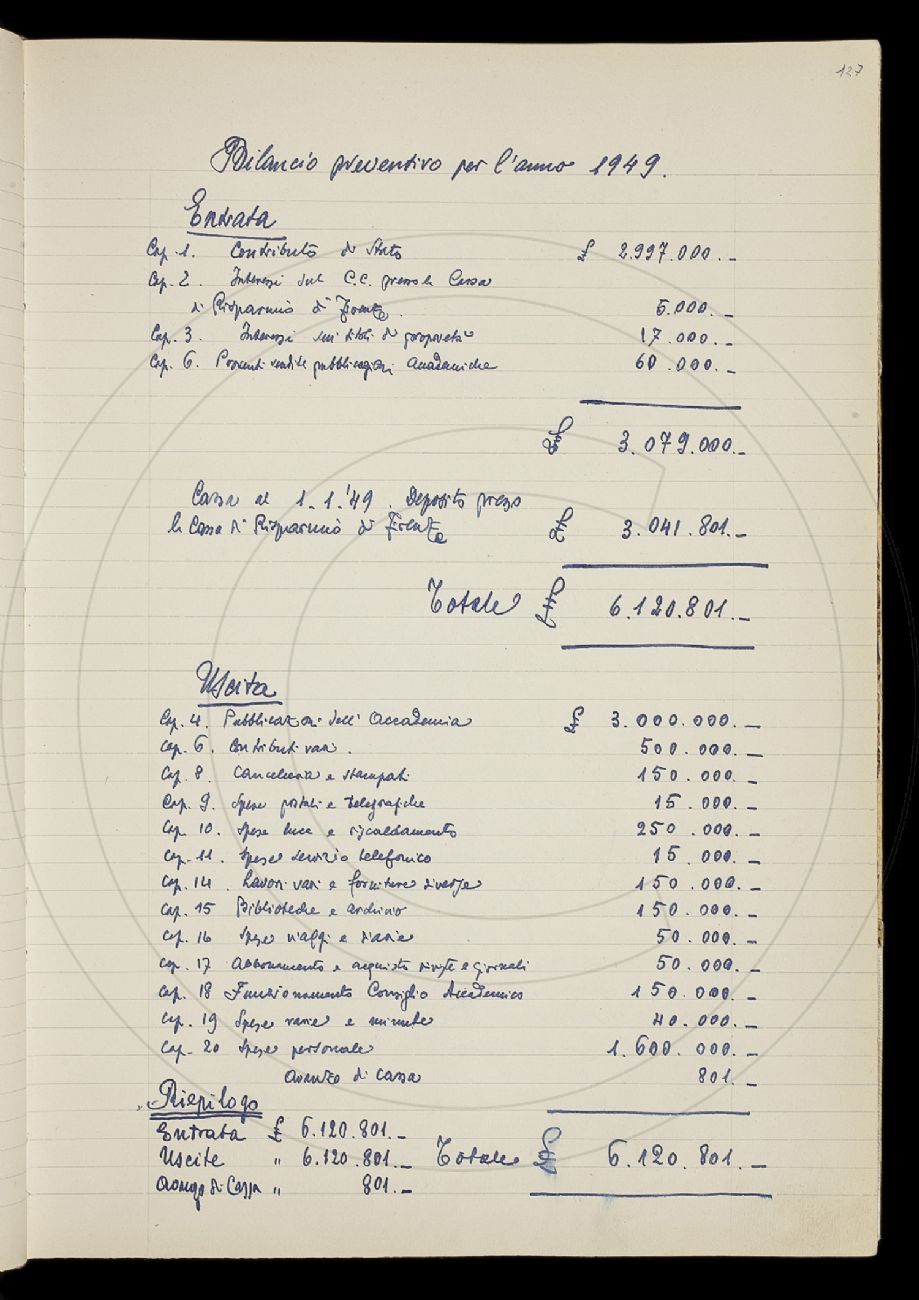 127
Bilancio preventivo per l'anno 1949.
Entrata
Cap. 1. Contributo di Stato £ 2.997.000.-
Cap. 2. Interessi sul C.C. presso la Cassa
di Risparmio di Firenze. 5.000.-
Cap. 3. Interessi sui titoli di proprietà 17.000.-
Cap. 6. Proventi vendite pubblicazioni accademiche 60.000.-
£ 3.079.000.-
Cassa al 1.1.'49. Deposito presso
la Cassa di Risparmio di Firenze £ 3.041.801.-
Totale £ 6.120.801.-
Uscita
Cap. 4. Pubblicazioni dell'Accademia £ 3.000.000.-
Cap. 6. Contributi vari. 500.000.-
Cap. 8. Cancelleria e stampati 150.000.-
Cap. 9. Spese postali e telegrafiche 15.000.-
Cap. 10. Spese luce e riscaldamento 250.000.-
Cap. 11. Spese servizio telefonico 15.000.-
Cap. 14. Lavori vari e forniture diverse 150.000.-
Cap. 15 Biblioteche e archivio 150.000.-
Cap. 16 Spese viaggi e diarie 50.000.-
Cap. 17 Abbonamento e acquisto riviste e giornali 50.000.-
Cap. 18 Funzionamento Consiglio Accademico 150.000.-
Cap. 19 Spese varie e minute 40.000.-
Cap. 20 Spese personale 1.600.000.-
Avanzo di cassa 801.-
Riepilogo
Entrata £ 6.120.801.-
Uscite " 6.120.801.- Totale £ 6.120.801.-
Avanzo di Cassa " 801.-